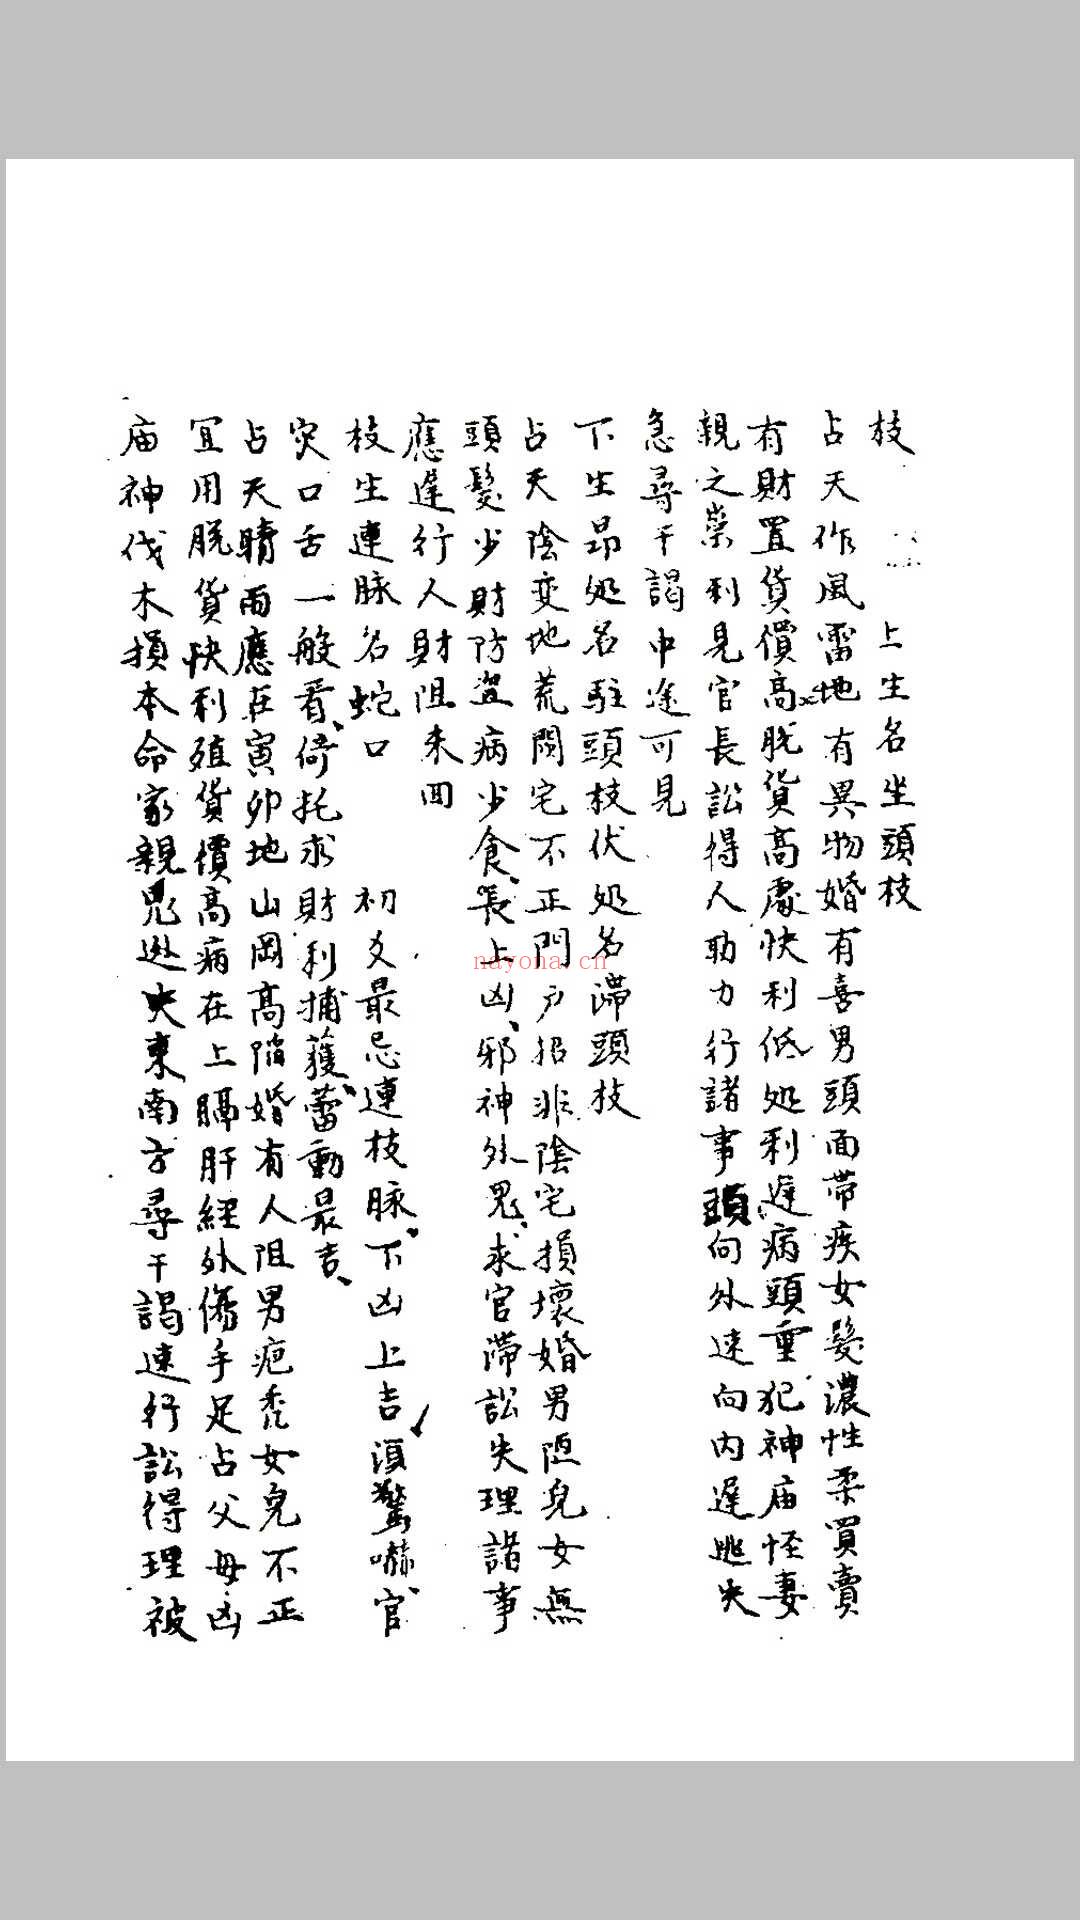 枝　　上生名坐頭枝
占天作風雷地有異物婚有喜男頭面帶疾女髮濃性柔買賣
有財置貨價高脱貨高處快利低処利遲病頭重犯神庙怪妻
親之祟利見官長訟得人助力行諸事頭向外速向内遲逃失
急尋干謁中途可見
下生昂処名駐頭枝伏処名滯頭枝
占天陰变地荒閙宅不正門户招非陰宅損壞婚男陋皃女無
頭髮少財防盗病少食、長上凶、邪神外鬼、求官滯訟失理諸事
應遲行人財阻未回
枝生連脉名蛇口　　初爻最忌連枝脉、下凶上吉須驚嚇、官
灾口舌一般看、倚托求財利捕獲、蕾動最吉、
占天晴雨應在寅卯地山岡高陷婚有人阻男疤秃女皃不正
冝用脱貨快利殖貨價高病在上膈肝經外傷手足占父母凶
庙神伐木損本命家親鬼逃失東南方尋干謁速行訟得理被
nayona.cn